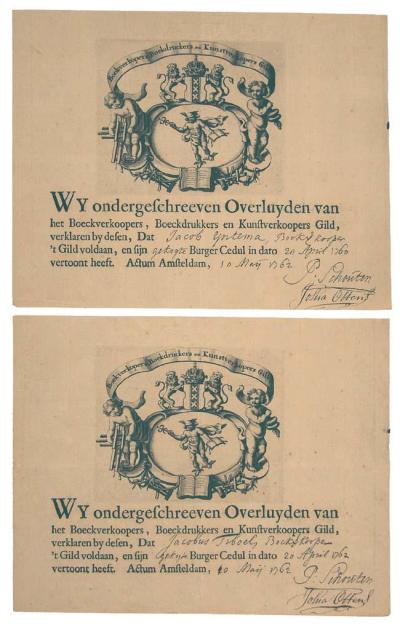 Boeckverkopers Boeckdruckers en Kunstverkopers Gild
WY ondergeschreeven Overluyden van
het Boeckverkoopers, Boeckdrukkers en Kunstverkoopers Gild,
verklaren by desen, Dat Jacob Yntema, Boekv̄kooper
't Gild voldaan, en sijn gekogte Burger Cedul in dato 20 April 1760
vertoont heeft. Actum Amsteldam, 10 Maij 1762
P: Schouten
Josua Ottens
Boeckverkopers Boeckdruckers en Kunstverkopers Gild
WY ondergeschreeven Overluyden van
het Boeckverkoopers, Boeckdrukkers en Kunstverkoopers Gild,
verklaren by desen, Dat Jacobus Boekv̄kooper
't Gild voldaan, en sijn Burger Cedul in dato 20 April 1762
vertoont heeft. Actum Amsteldam, 10 Maij 1762
P: Schouten
Josua Ottens